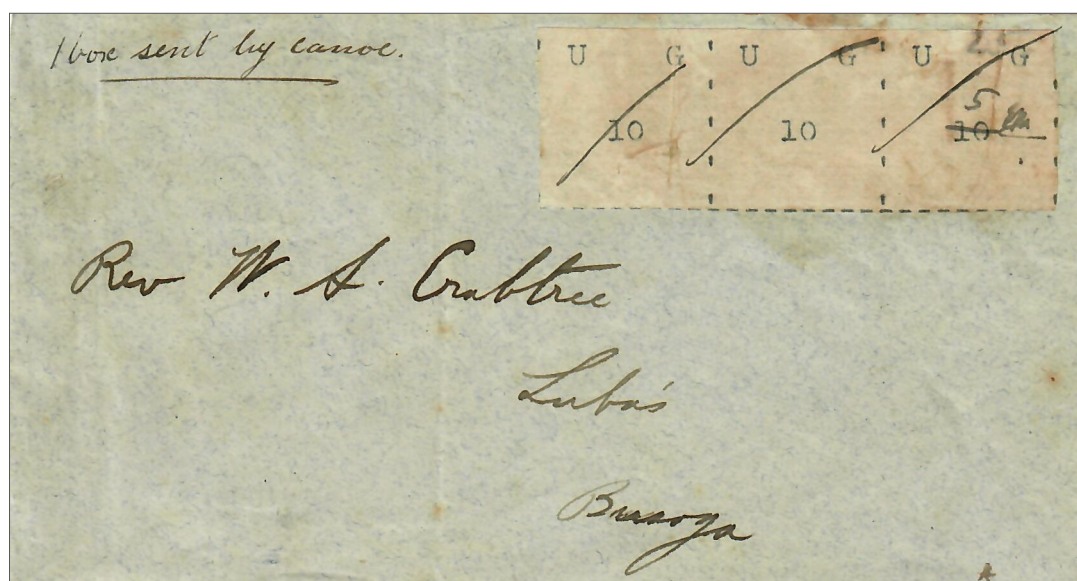 1 box sent by canoe.
U G U G U G
5
10 10 10
Rev W. A. Crabtree
Luba's
Busoga